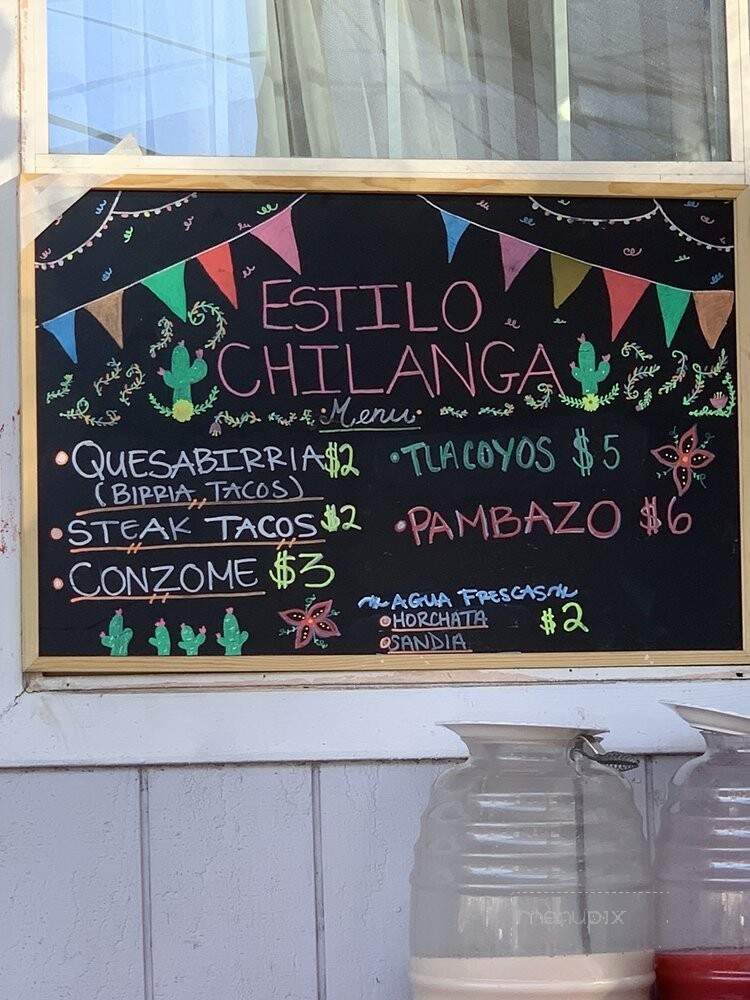 ESTILO
CHILANGA
Menu
• QUESABIRRIA $2
(BIRRIA TACOS)
• STEAK TACOS $2
• CONZOME $3
• TLACOYOS $5
• PAMBAZO $6
~AGUA FRESCAS~
• HORCHATA
• SANDIA
$2
menupix